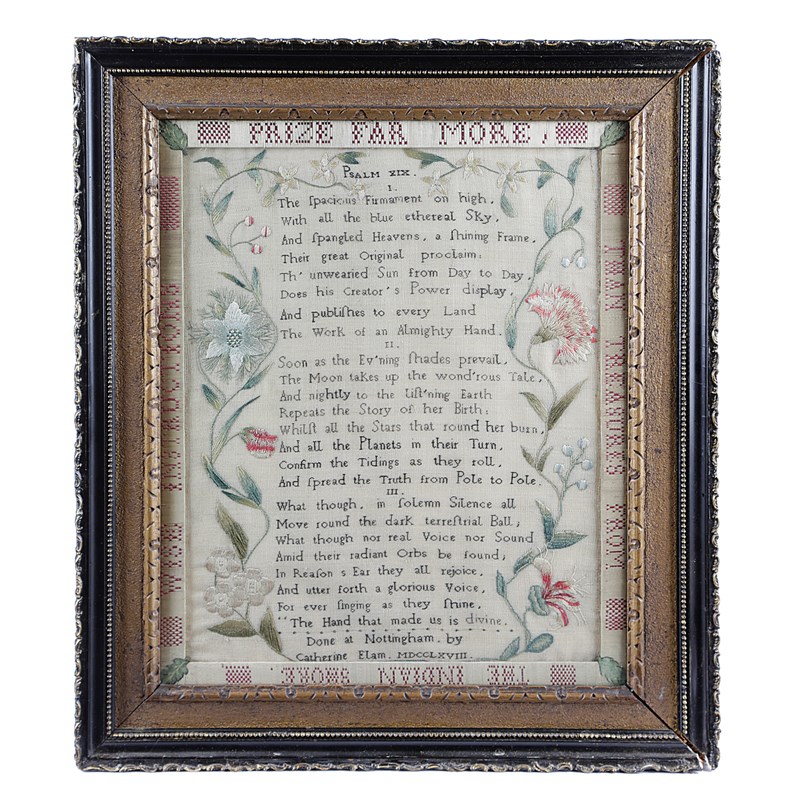 WISE INSTRUCTIONS
PRIZE FAR MORE
THAN TREASURES FROM
THE INDIAN SHORE.
PSALM XIX.
I.
The ſpacious Firmament on high,
With all the blue ethereal Sky,
And ſpangled Heavens, a ſhining Frame,
Their great Original proclaim:
Th' unwearied Sun from Day to Day,
Does his Creator's Power diſplay,
And publiſhes to every Land
The Work of an Almighty Hand.
II.
Soon as the Ev'ning ſhades prevail,
The Moon takes up the wond'rous Tale,
And nightly to the liſt'ning Earth
Repeats the Story of her Birth:
Whilſt all the Stars that round her burn,
And all the Planets in their Turn,
Confirm the Tidings as they roll,
And ſpread the Truth from Pole to Pole.
III.
What though, in ſolemn Silence all
Move round the dark terreſtrial Ball;
What though nor real Voice nor Sound
Amid their radiant Orbs be found;
In Reaſon's Ear they all rejoice,
And utter forth a glorious Voice,
For ever ſinging as they ſhine,
"The Hand that made us is divine.
Done at Nottingham. by
Catherine Elam. MDCCLXVIII.